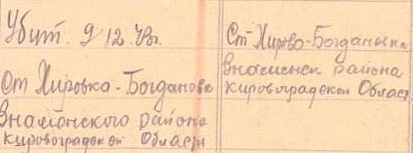 Убит. 9 12 43г.
Ст Хировка-Богданово
Знаменского района
Кировоградской Област
Ст-Хирово-Богданыка
Знаменск района
Кировоградской Област